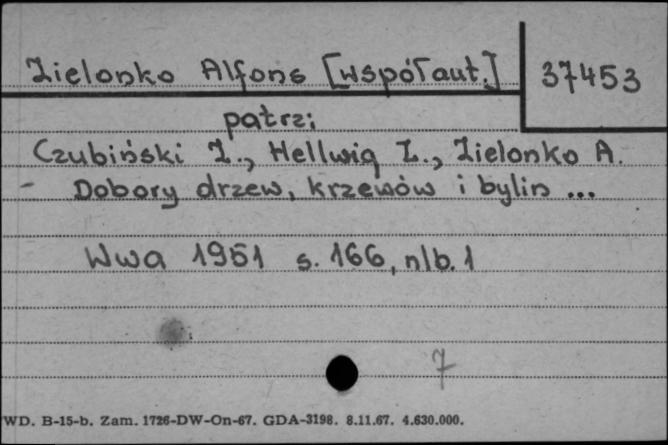 Zielonko Alfons [współaut.] 37453
patrz:
Czubiński Z., Hellwig Z., Zielonko A.
- Dobory drzew, krzewów i bylin ...
Wwa 1951 s. 166, nlb. 1
7
WD. B-15-b. Zam. 1726-DW-On-67. GDA-3198. 8.11.67. 4.630.000.